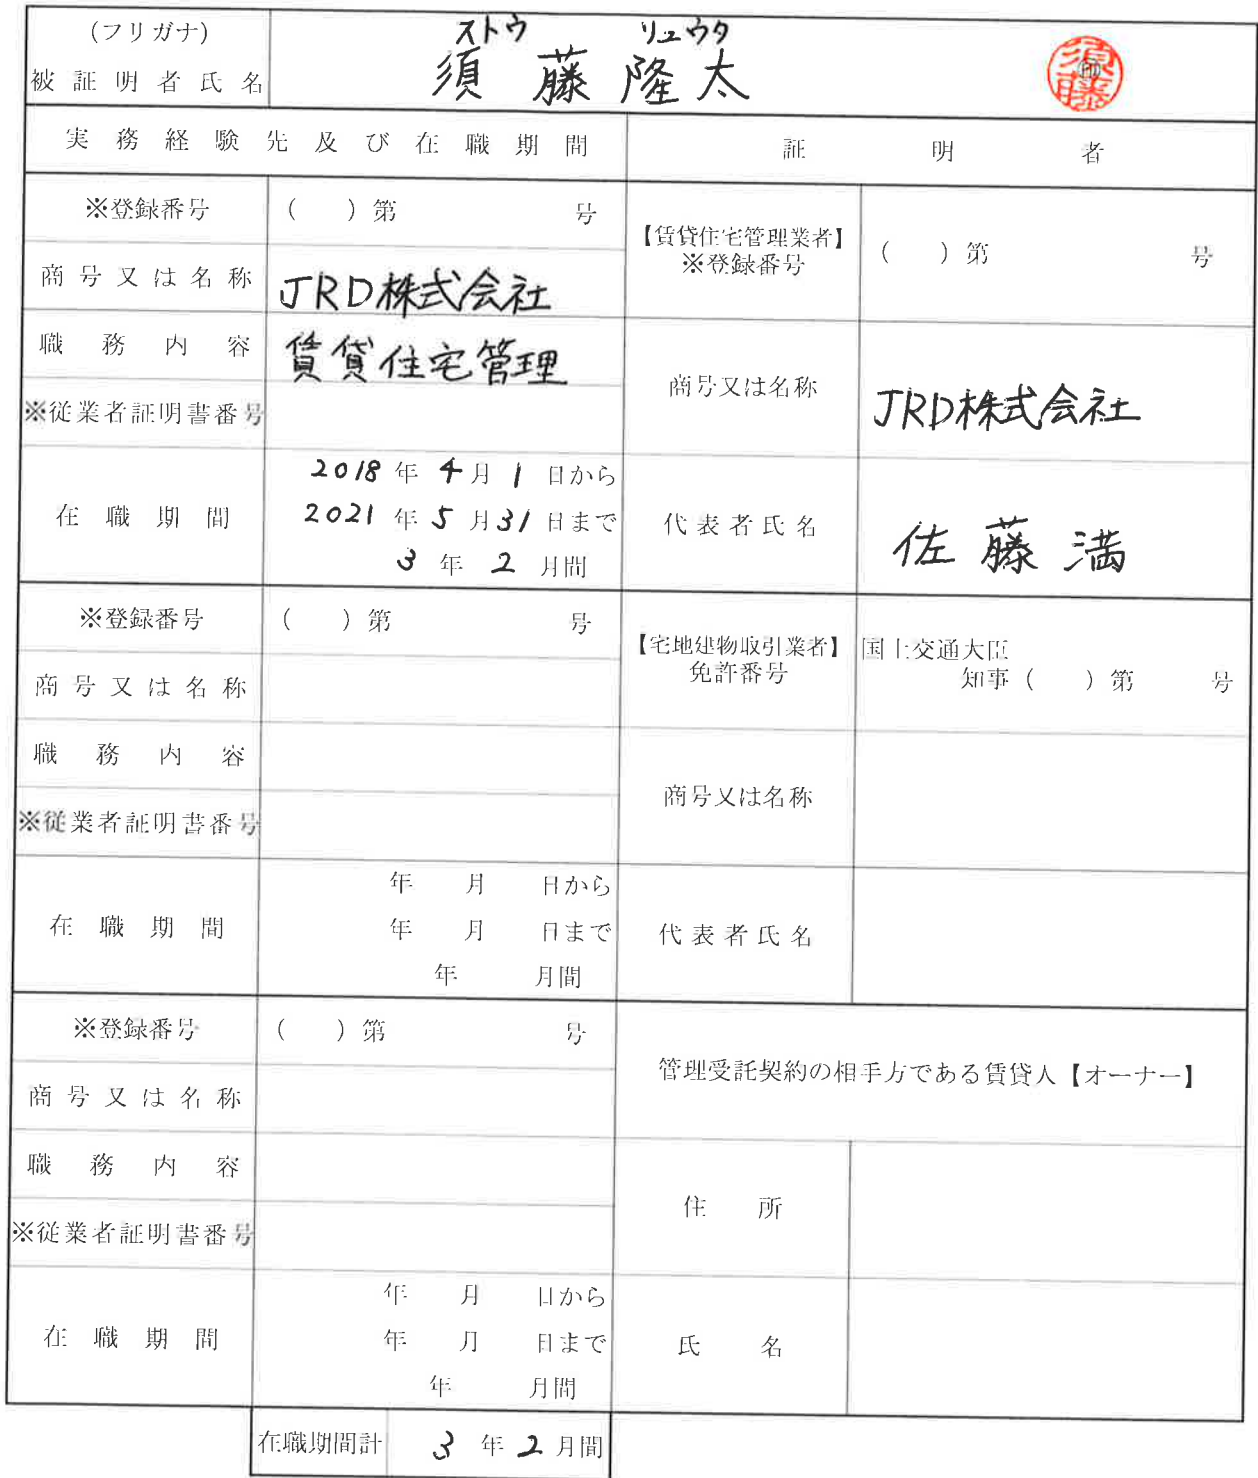 (フリガナ)
ストウ リュウタ
被証明者氏名 須藤隆太 須藤 ㊞
実務経験先及び在職期間 証明者
※登録番号 ( )第 号
【賃貸住宅管理業者】
※登録番号 ( )第 号
商号又は名称 JRD株式会社
職務内容 賃貸住宅管理
※従業者証明書番号
商号又は名称 JRD株式会社
在職期間
2018年4月1日から
2021年5月31日まで
3年2月間
代表者氏名 佐藤満
※登録番号 ( )第 号
【宅地建物取引業者】
免許番号
国土交通大臣
知事( )第 号
商号又は名称
職務内容
※従業者証明書番号
商号又は名称
在職期間
年 月 日から
年 月 日まで
年 月間
代表者氏名
※登録番号 ( )第 号
管理受託契約の相手方である賃貸人【オーナー】
商号又は名称
職務内容
※従業者証明書番号
住所
在職期間
年 月 日から
年 月 日まで
年 月間
氏名
在職期間計 3年2月間